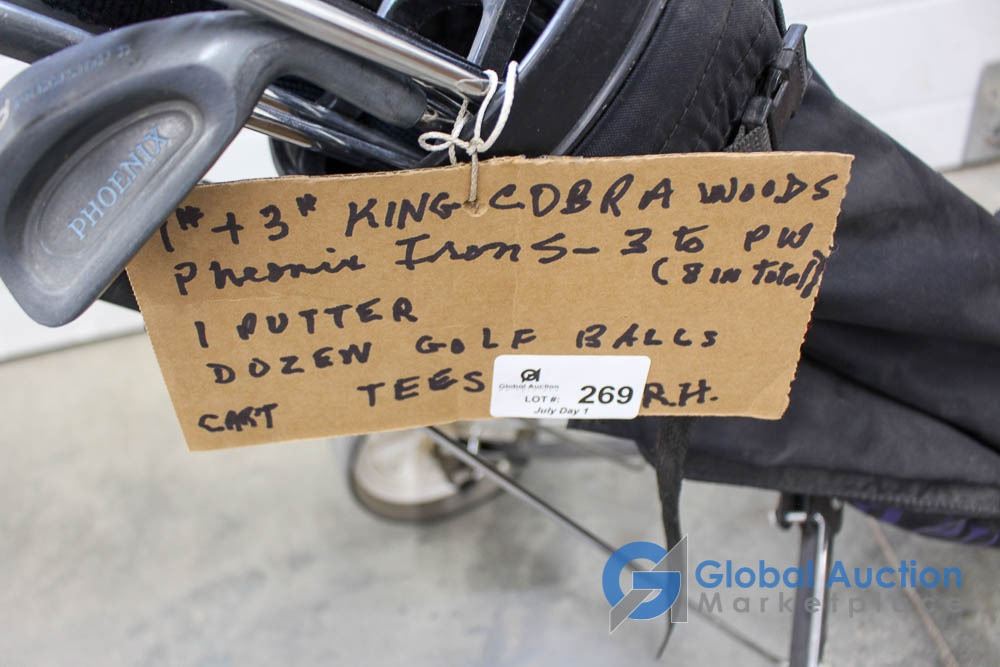 PHOENIX
1# + 3# KING COBRA WOODS
Pheonix Irons - 3 to PW
(8 in total)
1 PUTTER
DOZEN GOLF BALLS
TEES R.H.
CART
Global Auction
LOT #: 269
July Day 1
Global Auction
Marketplace